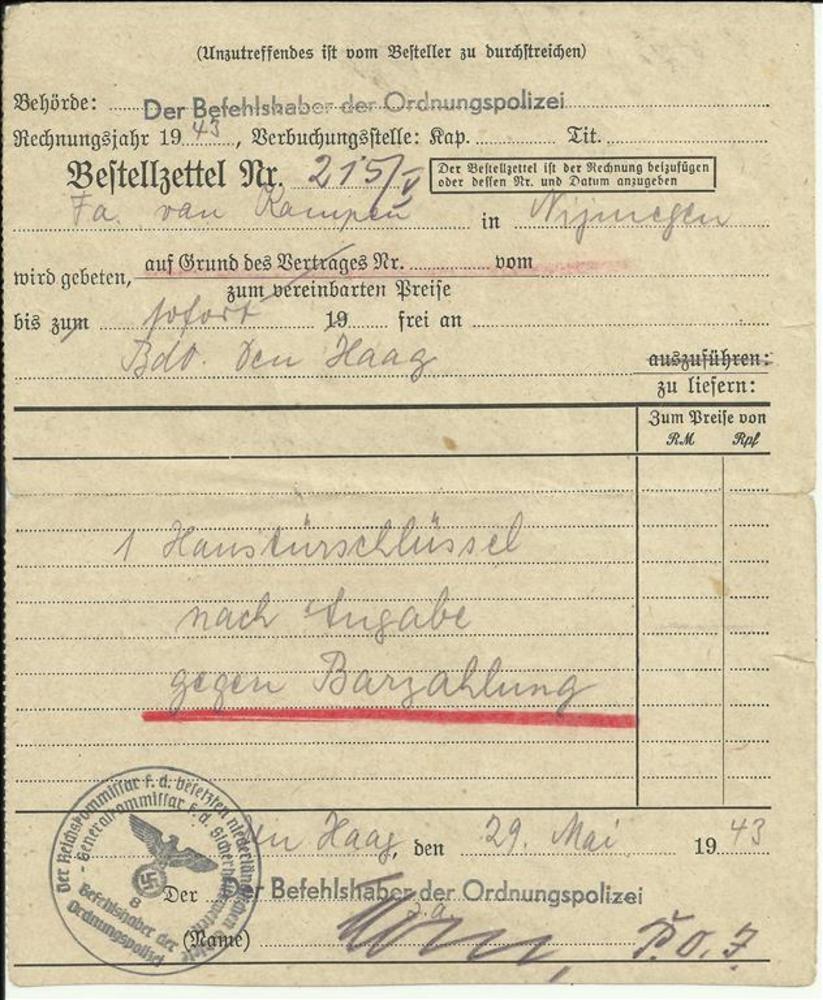 (Unzutreffendes ist vom Besteller zu durchstreichen)
Behörde: Der Befehlshaber der Ordnungspolizei
Rechnungsjahr 1943, Verbuchungsstelle: Kap. Tit.
Bestellzettel Nr. 215/V
Der Bestellzettel ist der Rechnung beizufügen
oder dessen Nr. und Datum anzugeben
Fa. van Kampen in Nijmegen
wird gebeten, auf Grund des Vertrages Nr. vom
zum vereinbarten Preise
bis zum sofort 19 frei an
BdO. Den Haag auszuführen:
zu liefern:
Zum Preise von
RM Rpf
1 Haustürschlüssel
nach Angabe
gegen Barzahlung
Den Haag, den 29. Mai 1943
Der Der Befehlshaber der Ordnungspolizei
J.A.
(Name) P.O.J.
Der Reichskommissar f. d. besetzten niederländischen Gebiete
- Generalkommissar f. d. Sicherheitswesen
8
Befehlshaber der
Ordnungspolizei